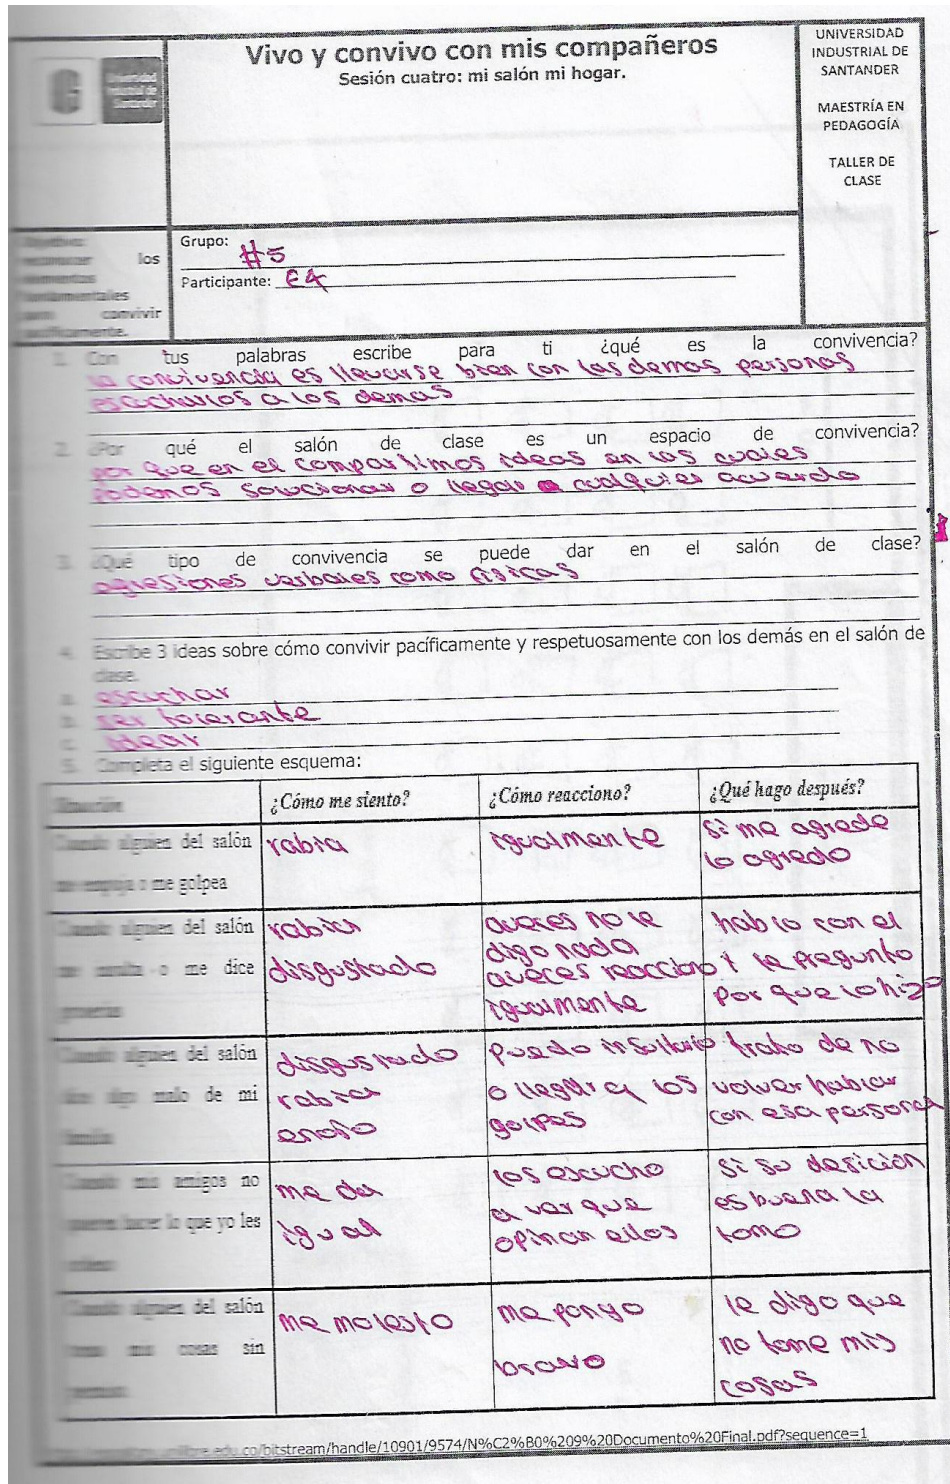 Vivo y convivo con mis compañeros
Sesión cuatro: mi salón mi hogar.
UNIVERSIDAD
INDUSTRIAL DE
SANTANDER
MAESTRÍA EN
PEDAGOGÍA
TALLER DE
CLASE
Universidad
Industrial de
Santander
los
fundamentales
convivir
pacíficamente.
Grupo: #5
Participante: E4
1. Con tus palabras escribe para ti ¿qué es la convivencia?
la convivencia es llevarse bien con las demas personas
escucharlos a los demas
2. ¿Por qué el salón de clase es un espacio de convivencia?
por que en el compartimos ideas en las cuales
podemos solucionar o llegar a cualquier acuerdo
3. ¿Qué tipo de convivencia se puede dar en el salón de clase?
agresiones verbales como fisicas
4. Escribe 3 ideas sobre cómo convivir pacíficamente y respetuosamente con los demás en el salón de
clase.
a. escuchar
b. ser tolerante
c. idear
5. Completa el siguiente esquema:
Situación ¿Cómo me siento? ¿Cómo reacciono? ¿Qué hago después?
Cuando alguien del salón
me empuja o me golpea
rabia
igualmente
si me agrede
lo agredo
Cuando alguien del salón
me insulta o me dice
groserías
rabia
disgustado
aveces no le
digo nada
aveces reacciono
igualmente
hablo con el
y le pregunto
por que lo hizo
Cuando alguien del salón
dice algo malo de mi
familia
disgustado
rabia
enojo
puedo insultarlo
o llegar a los
golpes
trato de no
volver hablar
con esa persona
Cuando mis amigos no
quieren hacer lo que yo les
me da
igual
los escucho
a ver que
opinan ellos
si su desición
es buena la
tomo
Cuando alguien del salón
toma mis cosas sin
permiso
me molesto
me pongo
bravo
le digo que
no tome mis
cosas
edu.co/bitstream/handle/10901/9574/N%C2%B0%209%20Documento%20Final.pdf?sequence=1